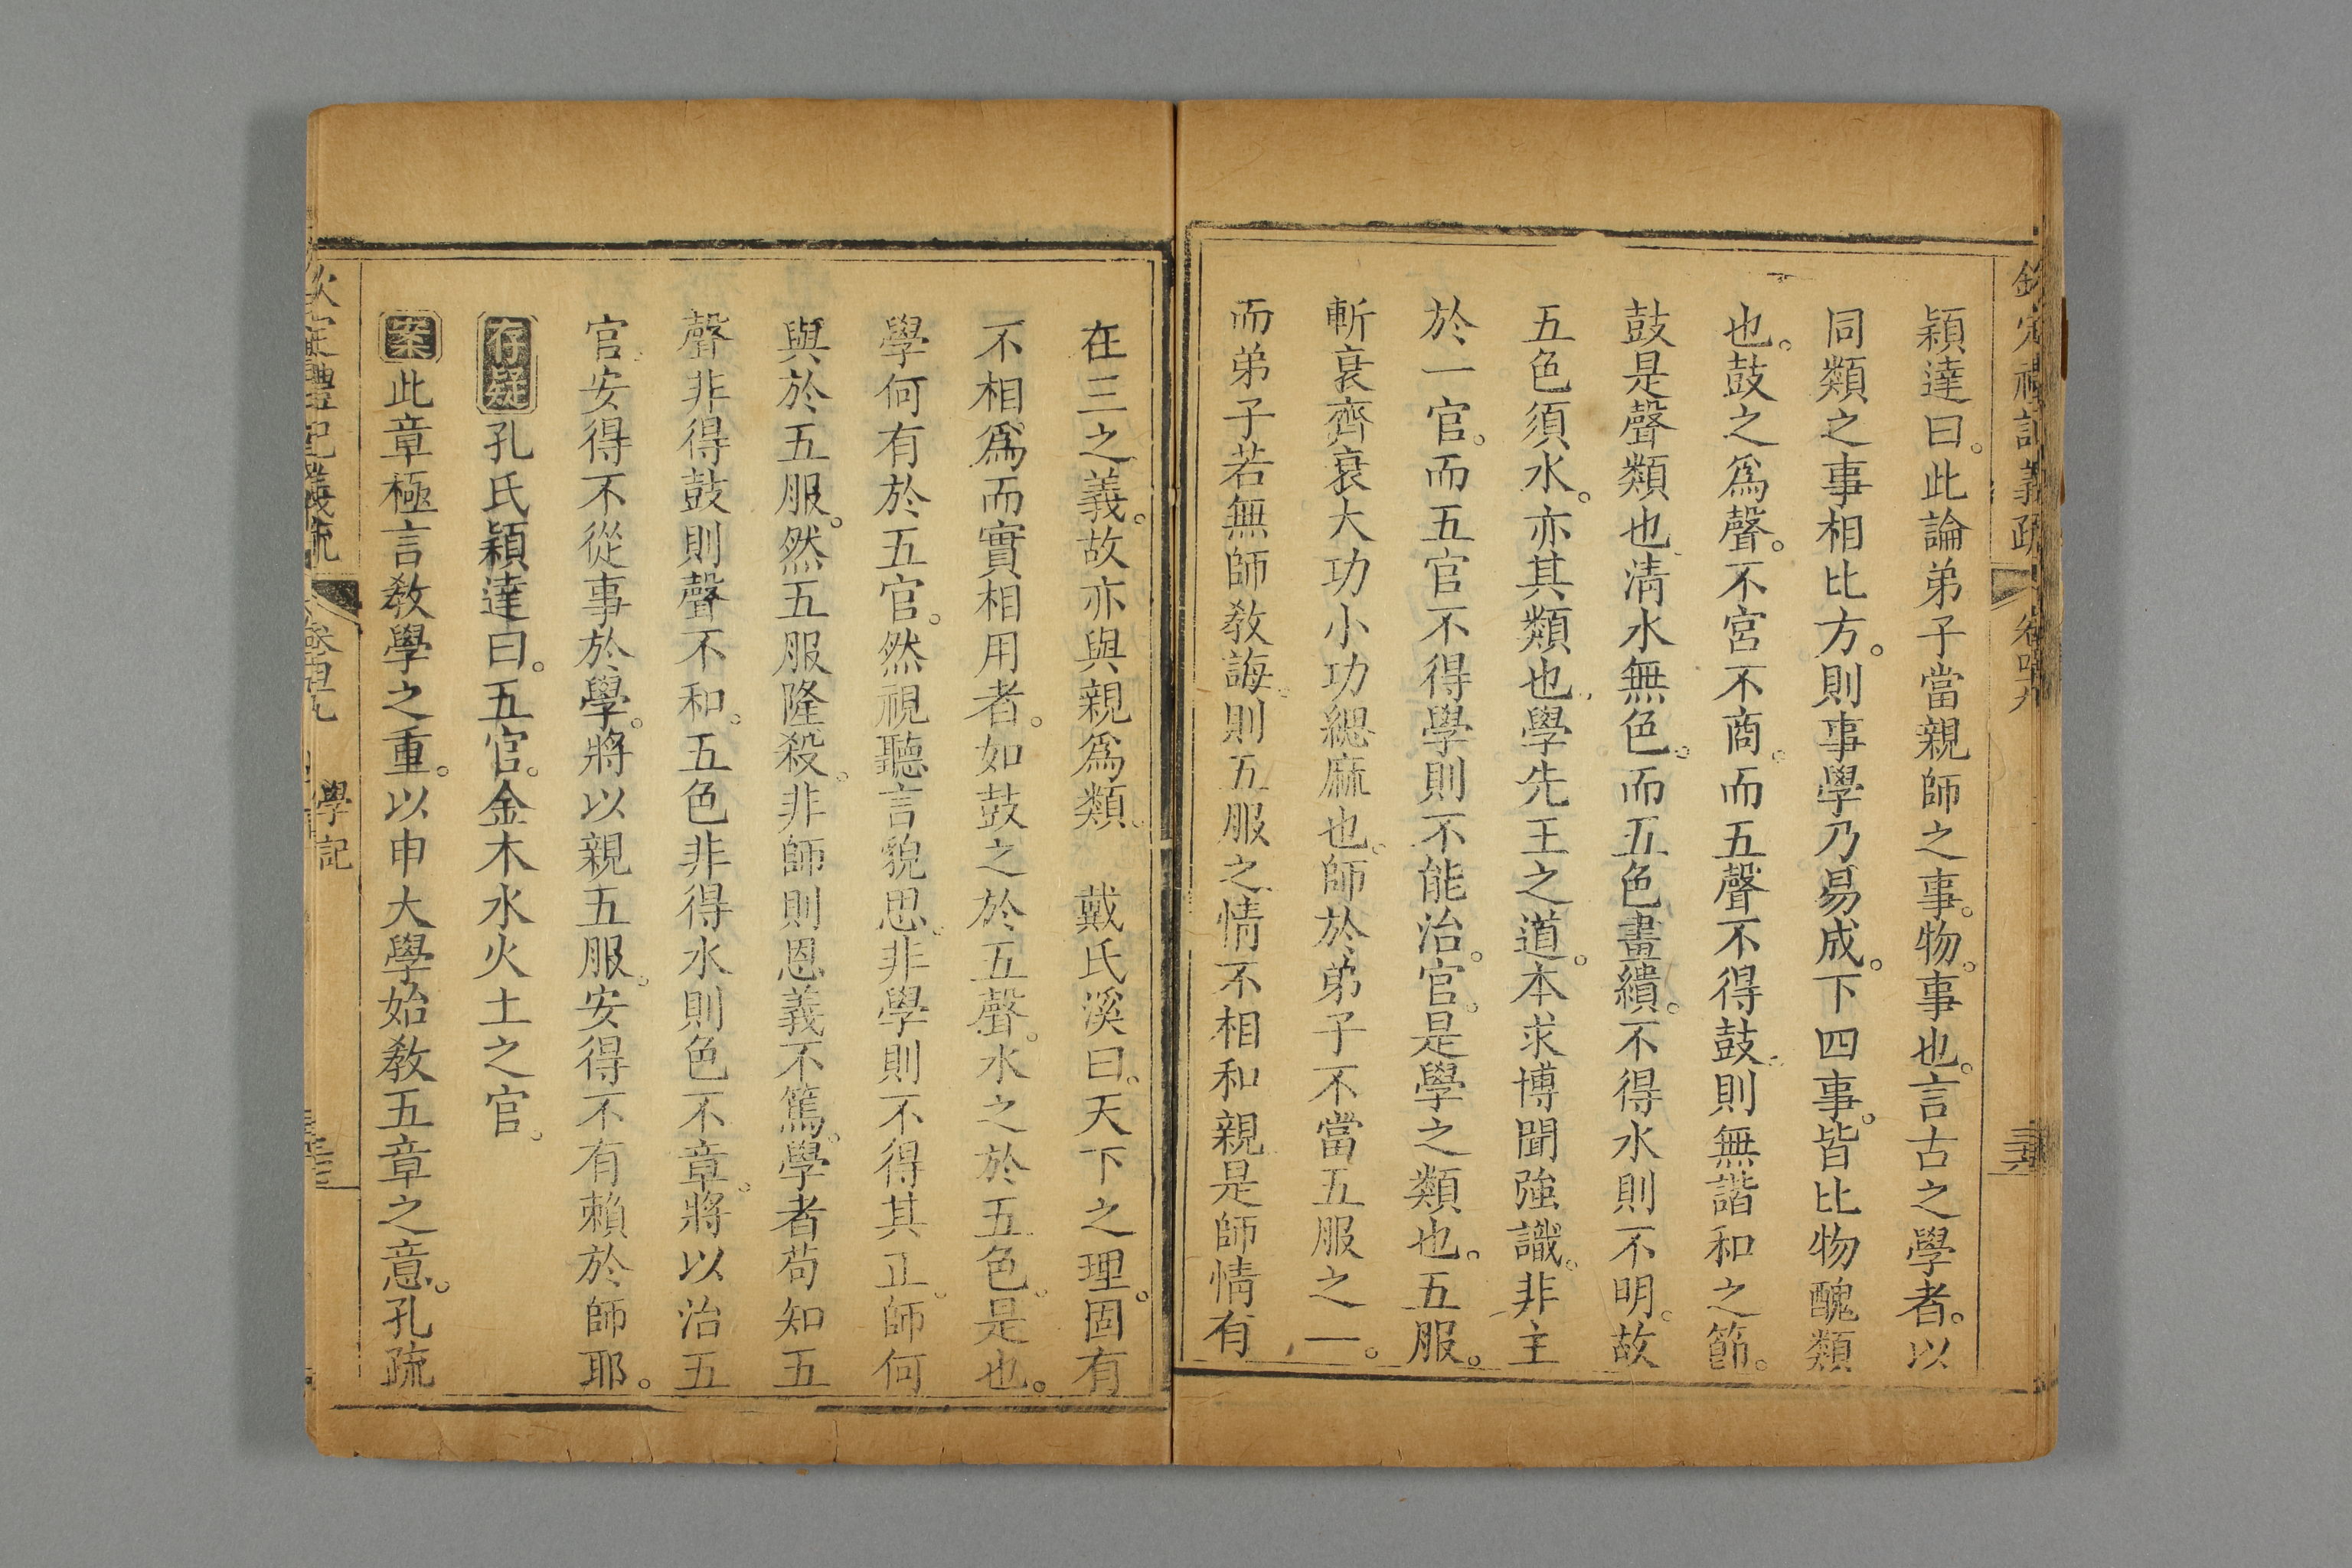 頴達曰。此論弟子當親師之事。物。事也。言古之學者。以
同類之事相比方。則事學乃易成。下四事。皆比物醜類
也。鼓之爲聲。不宮不商。而五聲不得鼓。則無諧和之節。
鼓是聲類也。淸水無色。而五色畫繢。不得水則不明。故
五色須水。亦其類也。學先王之道。本求博聞强識。非主
於一官。而五官不得學則不能治。官。是學之類也。五服。
斬衰齊衰大功小功緦麻也。師於弟子不當五服之一。
而弟子若無師敎誨。則五服之情不相和親是師情有
在三之義。故亦與親爲類。 戴氏溪曰。天下之理。固有
不相爲而實相用者。如鼓之於五聲。水之於五色。是也。
學何有於五官。然視聽言貌思。非學則不得其正。師何
與於五服。然五服隆殺。非師則恩義不篤。學者苟知五
聲非得鼓則聲不和。五色非得水則色不章。將以治五
官。安得不從事於學。將以親五服。安得不有賴於師耶。
存疑 孔氏頴達曰。五官。金木水火土之官。
案 此章極言敎學之重。以申大學始敎五章之意。孔疏
欽定禮記義疏 學記